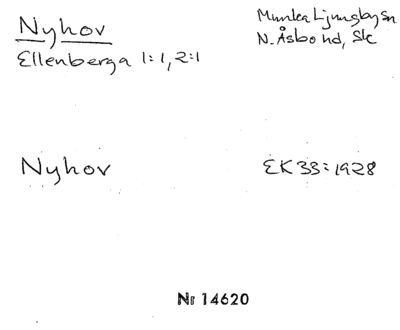 Nyhov
Munka Ljungby sn
Ellenberga 1:1, 2:1
N. Åsbo hd, Sk
Nyhov
EK 33:1928
Nr 14620